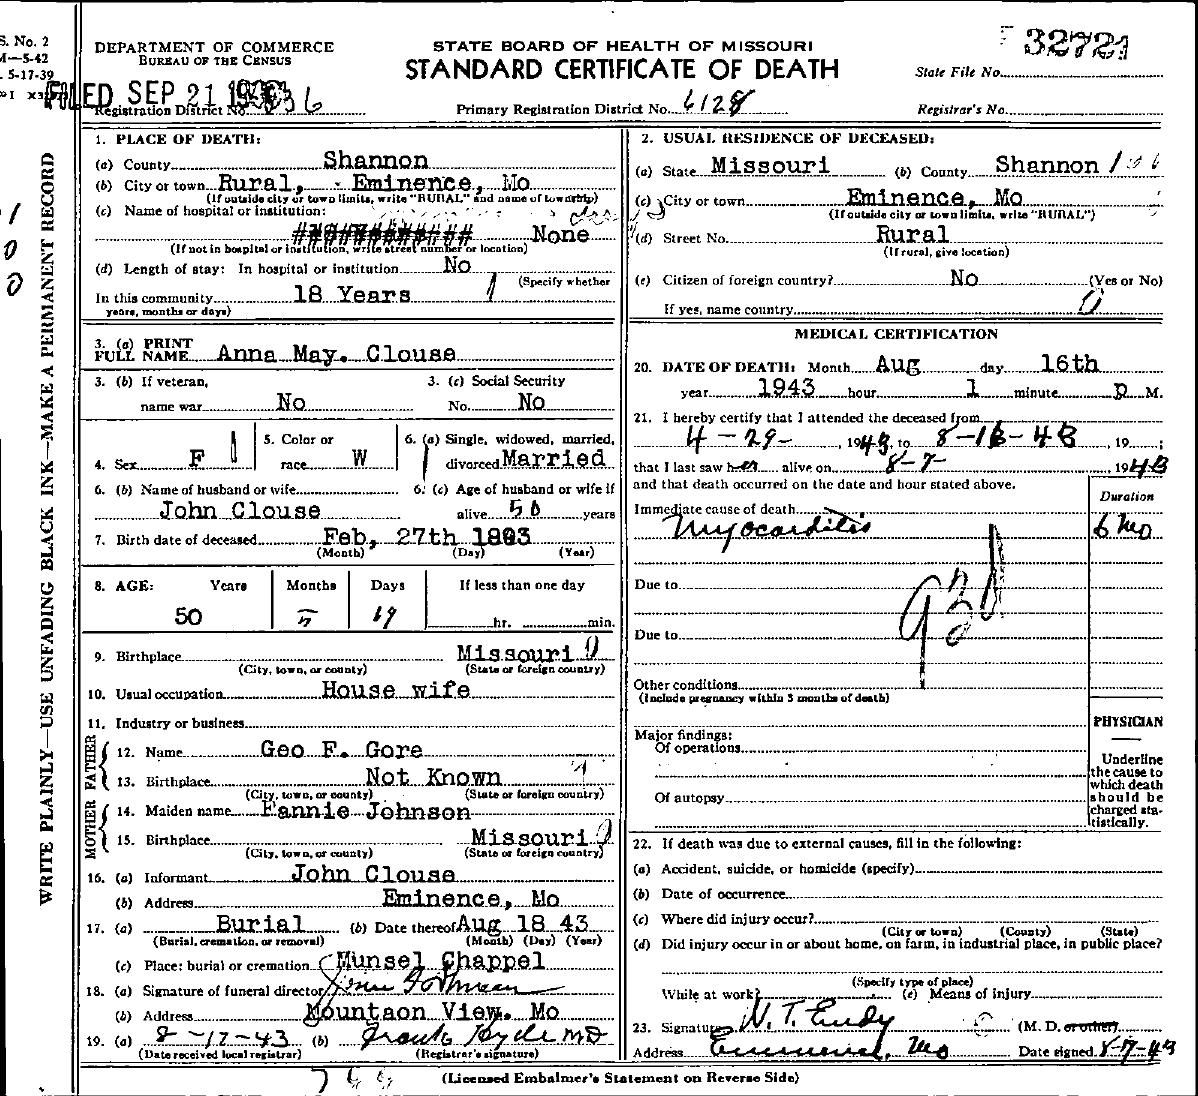 S. No. 2
M—5-42
5-17-39
WRITE PLAINLY—USE UNFADING BLACK INK—MAKE A PERMANENT RECORD
1
0
0
DEPARTMENT OF COMMERCE
BUREAU OF THE CENSUS
FILED SEP 21
Registration District No.
STATE BOARD OF HEALTH OF MISSOURI
STANDARD CERTIFICATE OF DEATH
Primary Registration District No. 6128
32721
State File No.
Registrar's No.
1. PLACE OF DEATH:
(a) County Shannon
(b) City or town Rural, - Eminence, Mo
(If outside city or town limits, write "RURAL" and name of township)
(c) Name of hospital or institution:
None
(If not in hospital or institution, write street number or location)
(d) Length of stay: In hospital or institution No
(Specify whether
In this community 18 Years
years, months or days)
3. (a) PRINT
FULL NAME Anna May. Clouse
3. (b) If veteran,
name war No
3. (c) Social Security
No. No
4. Sex F
5. Color or
race W
6. (a) Single, widowed, married,
divorced Married
6. (b) Name of husband or wife
John Clouse
6. (c) Age of husband or wife if
alive 50 years
7. Birth date of deceased Feb, 27th 1893
(Month) (Day) (Year)
8. AGE: Years Months Days If less than one day
50 5 19 hr. min.
9. Birthplace Missouri 0
(City, town, or county) (State or foreign country)
10. Usual occupation House wife
11. Industry or business
FATHER
12. Name Geo F. Gore
13. Birthplace Not Known
(City, town, or county) (State or foreign country)
MOTHER
14. Maiden name Fannie Johnson
15. Birthplace Missouri 0
(City, town, or county) (State or foreign country)
16. (a) Informant John Clouse
(b) Address Eminence, Mo
17. (a) Burial (b) Date thereof Aug 18 43
(Burial, cremation, or removal) (Month) (Day) (Year)
(c) Place: burial or cremation Munsel Chappel
18. (a) Signature of funeral director
(b) Address Mountaon View. Mo
19. (a) 8-17-43 (b) Frank Hyde MD
(Date received local registrar) (Registrar's signature)
2. USUAL RESIDENCE OF DECEASED:
(a) State Missouri (b) County Shannon
(c) City or town Eminence, Mo
(If outside city or town limits, write "RURAL")
(d) Street No. Rural
(If rural, give location)
(e) Citizen of foreign country? No (Yes or No)
If yes, name country 0
MEDICAL CERTIFICATION
20. DATE OF DEATH: Month Aug day 16th
year 1943 hour 1 minute P M.
21. I hereby certify that I attended the deceased from
4-29-, 1943 to 8-16-43, 19 ;
that I last saw her alive on 8-7-, 1943
and that death occurred on the date and hour stated above.
Duration
Immediate cause of death
Myocarditis 6 mo
93d
Due to
Due to
Other conditions
(Include pregnancy within 3 months of death)
Major findings:
Of operations
Of autopsy
PHYSICIAN
Underline
the cause to
which death
should be
charged sta-
tistically.
22. If death was due to external causes, fill in the following:
(a) Accident, suicide, or homicide (specify)
(b) Date of occurrence
(c) Where did injury occur?
(City or town) (County) (State)
(d) Did injury occur in or about home, on farm, in industrial place, in public place?
(Specify type of place)
While at work? (e) Means of injury
23. Signature W. T. Eudy (M. D. or other)
Address Eminence, Mo Date signed 8-17-43
(Licensed Embalmer's Statement on Reverse Side)